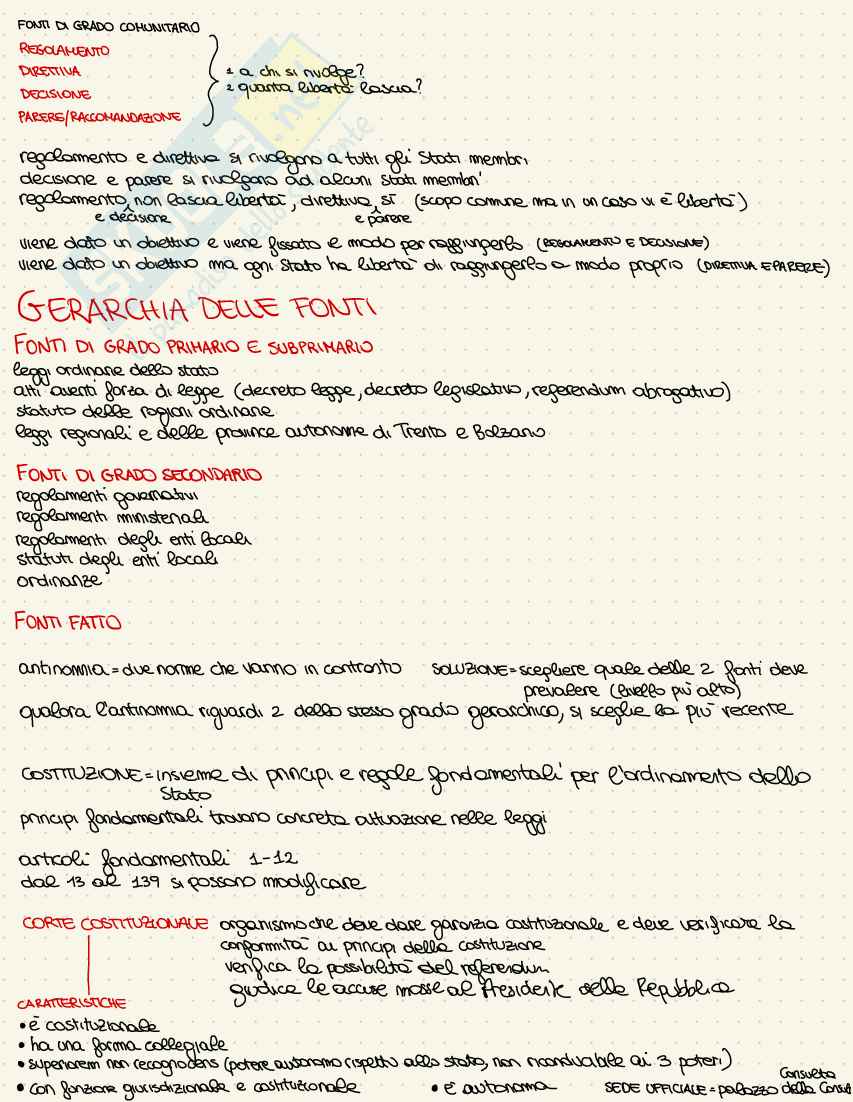 FONTI DI GRADO COMUNITARIO
REGOLAMENTO
DIRETTIVA
DECISIONE
PARERE/RACCOMANDAZIONE
1 a chi si rivolge?
2 quanta libertà lascia?
regolamento e direttiva si rivolgono a tutti gli Stati membri
decisione e parere si rivolgono ad alcuni Stati membri
regolamento, non lascia libertà, direttiva, sì (scopo comune ma in un caso vi è libertà)
e decisione e parere
viene dato un obiettivo e viene fissato il modo per raggiungerlo (REGOLAMENTO E DECISIONE)
viene dato un obiettivo ma ogni Stato ha libertà di raggiungerlo a modo proprio (DIRETTIVA E PARERE)
GERARCHIA DELLE FONTI
FONTI DI GRADO PRIMARIO E SUBPRIMARIO
leggi ordinarie dello stato
atti aventi forza di legge (decreto legge, decreto legislativo, referendum abrogativo)
statuto delle regioni ordinarie
leggi regionali e delle province autonome di Trento e Bolzano
FONTI DI GRADO SECONDARIO
regolamenti governativi
regolamenti ministeriali
regolamenti degli enti locali
statuti degli enti locali
ordinanze
FONTI FATTO
antinomia = due norme che vanno in contrasto SOLUZIONE = scegliere quale delle 2 fonti deve
prevalere (livello più alto)
qualora l'antinomia riguardi 2 dello stesso grado gerarchico, si sceglie la più recente
COSTITUZIONE = insieme di principi e regole fondamentali per l'ordinamento dello
Stato
principi fondamentali trovano concreta attuazione nelle leggi
articoli fondamentali 1-12
dal 13 al 139 si possono modificare
CORTE COSTITUZIONALE organismo che deve dare garanzia costituzionale e deve verificare la
conformità ai principi della costituzione
verifica la possibilità del referendum
giudica le accuse mosse al Presidente della Repubblica
CARATTERISTICHE
• è costituzionale
• ha una forma collegiale
• superiorem non recognoscens (potere autonomo rispetto allo stato, non riconducibile ai 3 poteri)
• con funzione giurisdizionale e costituzionale • è autonoma SEDE UFFICIALE = palazzo della Consulta
Consulta